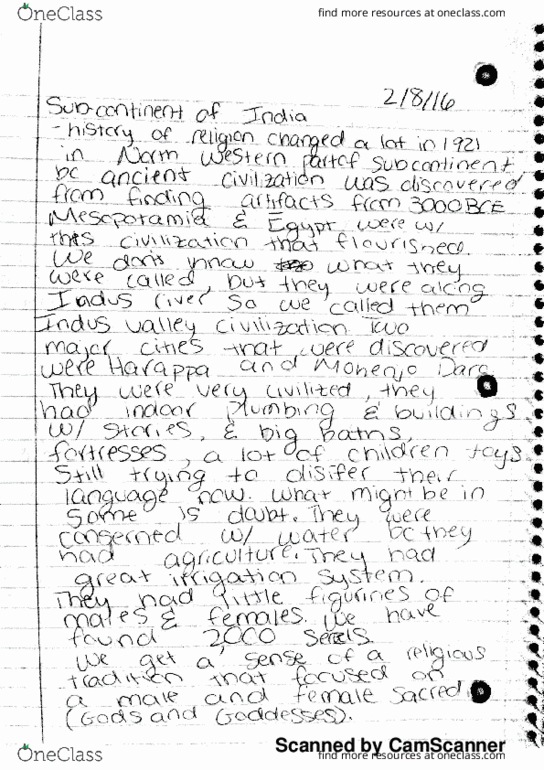 OneClass
find more resources at oneclass.com
2/8/16
Sub-continent of India
- history of religion changed a lot in 1921
in Norm western part of subcontinent
bc ancient civilization was discovered
from finding artifacts from 3000 BCE
Mesopotamia & Egypt were w/
this civilization that flourished.
We don't know what they
were called, but they were along
Indus river so we called them
Indus valley civilization Two
major cities that were discovered
were Harappa and Mohenjo Daro
They were very civilized, they
had indoor plumbing & buildings
w/ stories, & big baths,
fortresses, a lot of children toys
Still trying to disifer their
language now. What might be in
some is doubt. They were
conserned w/ water bc they
had agriculture. They had
great irrigation system.
They had little figurines of
males & females. We have
found 2,000 Seals.
We get a sense of a religious
tradition that focused on
a male and female sacred
(Gods and Goddesses).
Scanned by CamScanner
OneClass
find more resources at oneclass.com